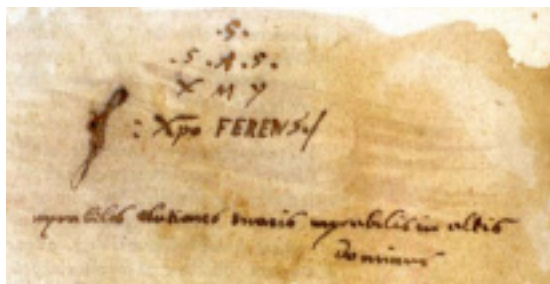 .S.
.S.A.S.
X M Y
: Xpo FERENS./
mirabiles elationes maris mirabilis in altis
dominus